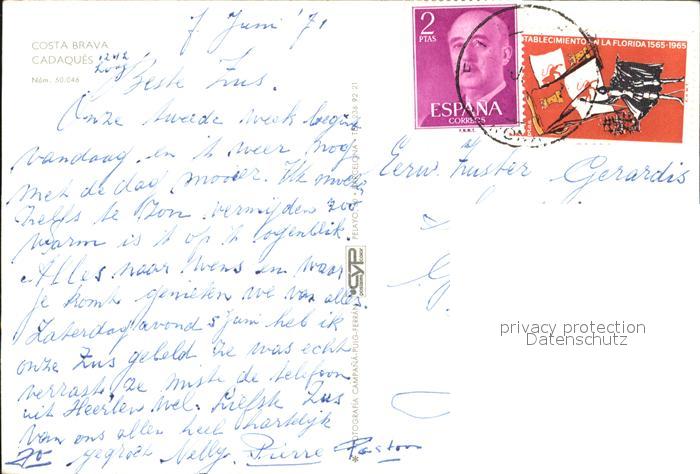 7 Juni '71
COSTA BRAVA
CADAQUÉS
Núm. 50.046
Beste Zus.
Onze tweede week begint
vandaag en 't weer nog
met de dag mooier. Ik moet
zelfs te Zon vermijden zoo
warm is 't op 't ogenblik.
Alles naar wens en waar
je komt genieten we van alles.
Zaterdagavond 5 Juni heb ik
onze Zus gebeld ze was echt
verrast, ze miste de telefoon
uit Heerlen wel. Liefste Zus
van ons allen heel hartelijk
gegroet Nelly, Pierre Pastoor
FOTOGRAFIA CAMPAÑÁ-PUIG-FERRÁN
CYP
2
PTAS
ESPAÑA
CORREOS
F.N.M.T.
TABLECIMIENTO EN LA FLORIDA 1565-1965
Eerw. Zuster Gerardis
privacy protection
Datenschutz